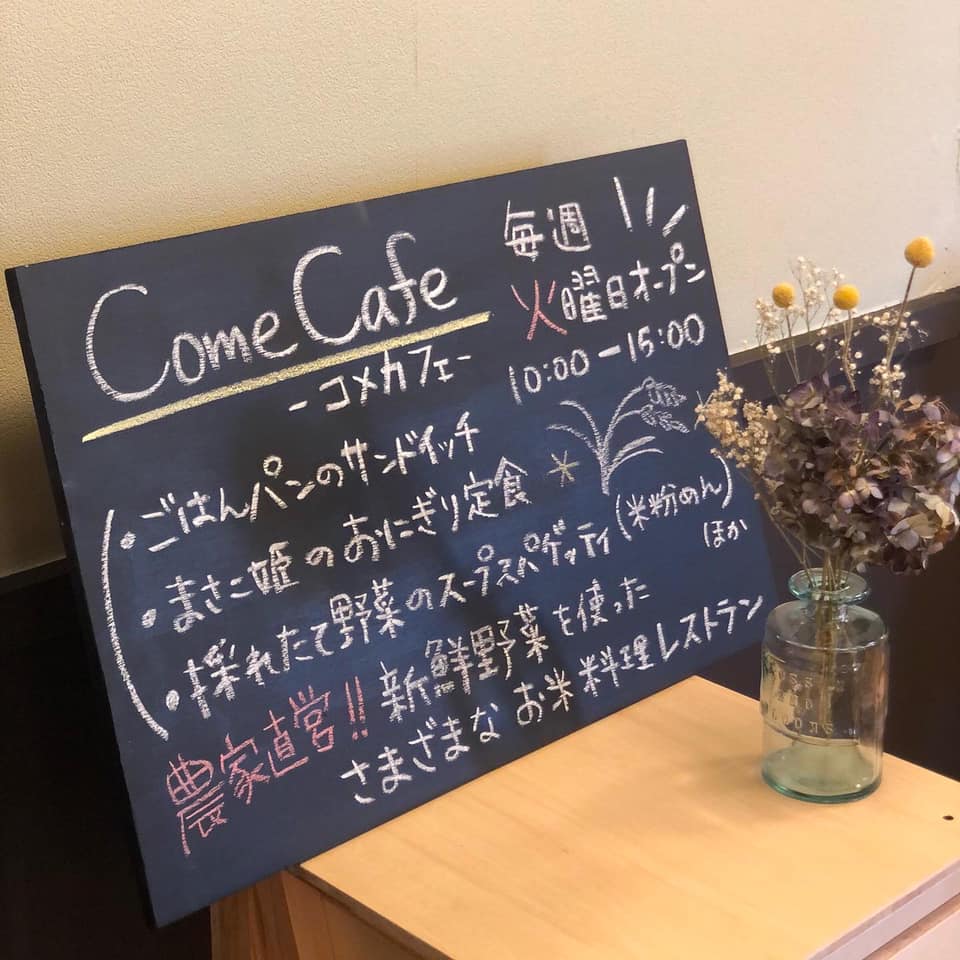 Come Cafe
-コメカフェ-
毎週
火曜日オープン
10:00ー15:00
・ごはんパンのサンドイッチ
・まさこ姫のおにぎり定食
・採れたて野菜のスープスパゲッティ(米粉めん)
ほか
農家直営!! 新鮮野菜を使った
さまざまなお米料理レストラン